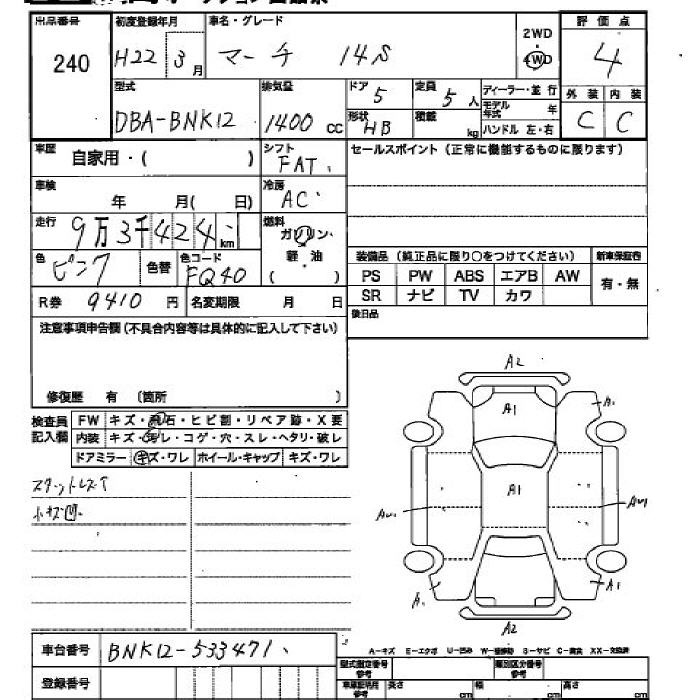 出品番号 初度登録年月 車名・グレード 2WD 評価点
240 H22 3月 マーチ 14S 4WD 4
型式 排気量 ドア 5 定員 5人 ディーラー・並行 外装 内装
DBA-BNK12 1400cc 形状 HB 積載 kg モデル年式 年 C C
ハンドル 左・右
車歴 自家用・( ) シフト FAT セールスポイント(正常に機能するものに限ります)
車検 年 月( 日) 冷房 AC
走行 9万3千424km 燃料 ガソリン・
色 ピンク 色替 色コード FQ40 軽油
( )
装備品(純正品に限り○をつけてください) 新車保証書
PS PW ABS エアB AW 有・無
SR ナビ TV カワ
R券 9410円 名変期限 月 日 後日品
注意事項申告欄(不具合内容等は具体的に記入して下さい)
修復歴 有 (箇所 )
検査員記入欄 FW キズ・飛石・ヒビ割・リペア跡・X要
内装 キズ・汚レ・コゲ・穴・スレ・ヘタリ・破レ
ドアミラー キズ・ワレ ホイール・キャップ キズ・ワレ
スタットレスT
小キズ凹
A2
A1 A1
A1
A1
A1
A2
車台番号 BNK12-533471
登録番号
A-キズ E-エクボ U-凹み W-補修跡 S-サビ C-腐食 XX-交換済
型式指定番号参考 類別区分番号参考
車庫証明用参考 長さ cm 幅 cm 高さ cm